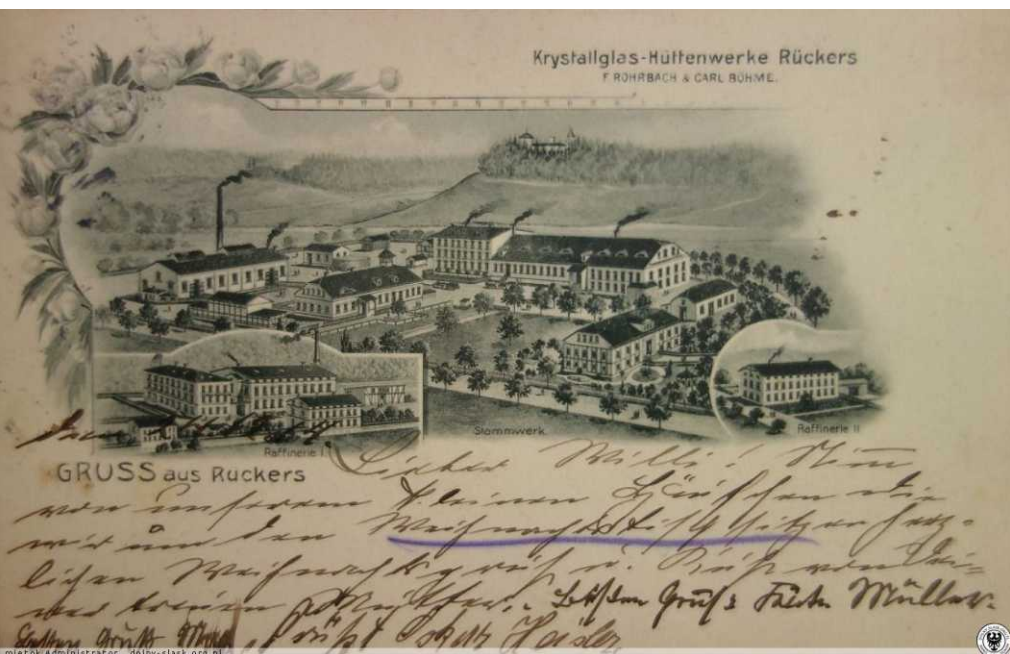 Krystallglas-Hüttenwerke Rückers
F. ROHRBACH & CARL BÖHME.
Stammwerk
Raffinerie II
Raffinerie I.
GRUSS aus Rückers
Lieber Willi! Nimm
von unserem kleinen Häufchen die
wir um den Weihnachtstisch sitzen herz-
lichen Weihnachtsgruß u. Kuß von Dei-
ner treuen Mutter. Besten Gruß Müller.
Besten Gruß
mietek Administrator dolny-slask.org.pl